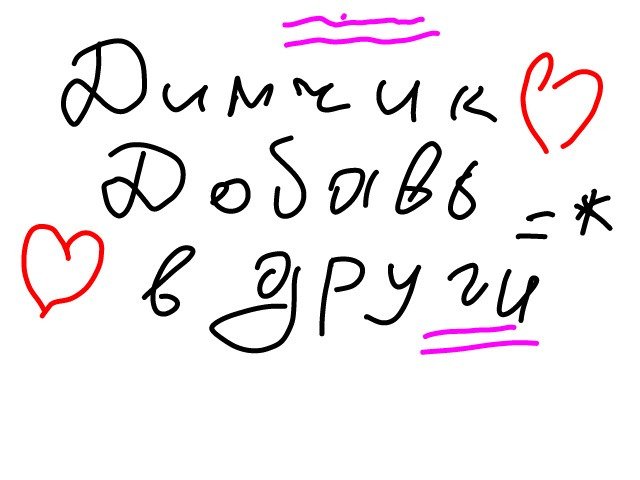 Димчик
Добавь =*
в други